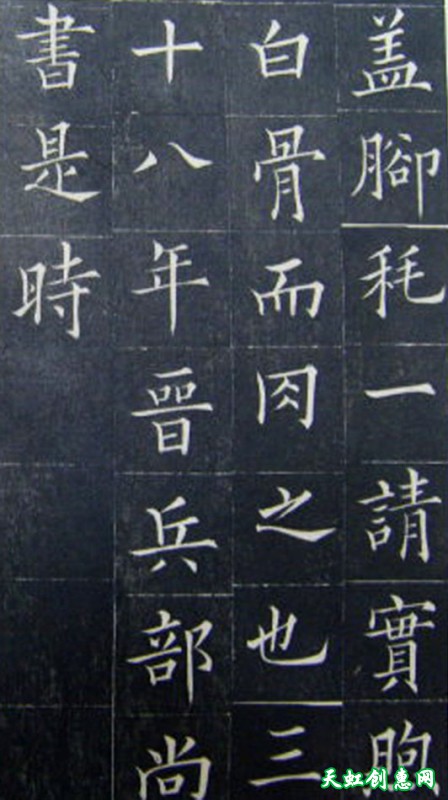 盖腳秏一請實
白骨而肉之也三
十八年晉兵部尚
書是時
天虹创惠网